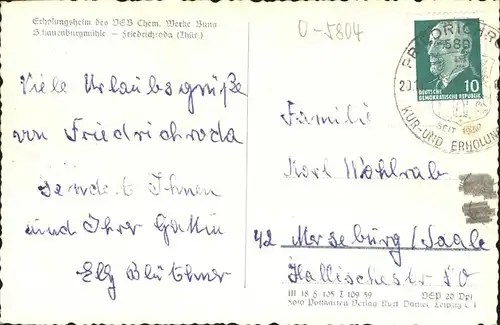 Erholungsheim des VEB Chem. Werke Buna
Schauenburgmühle — Friedrichroda (Thür.)
O-5804
Viele Urlaubsgrüße
von Friedrichroda
sendet Ihnen
und Ihrer Gattin
Elg Blüthner
FRIEDRICHRO
589
20.1
SEIT
KUR- UND ERHOLUN
10
DEUTSCHE
DEMOKRATISCHE REPUBLIK
Familie
Karl Wohlrab
42 Merseburg/Saale
Hallischestr 50
III 18 8 105 I 109 59
DEP 20 Dpf
Foto Postkarten Verlag Kurt Leipzig C 1